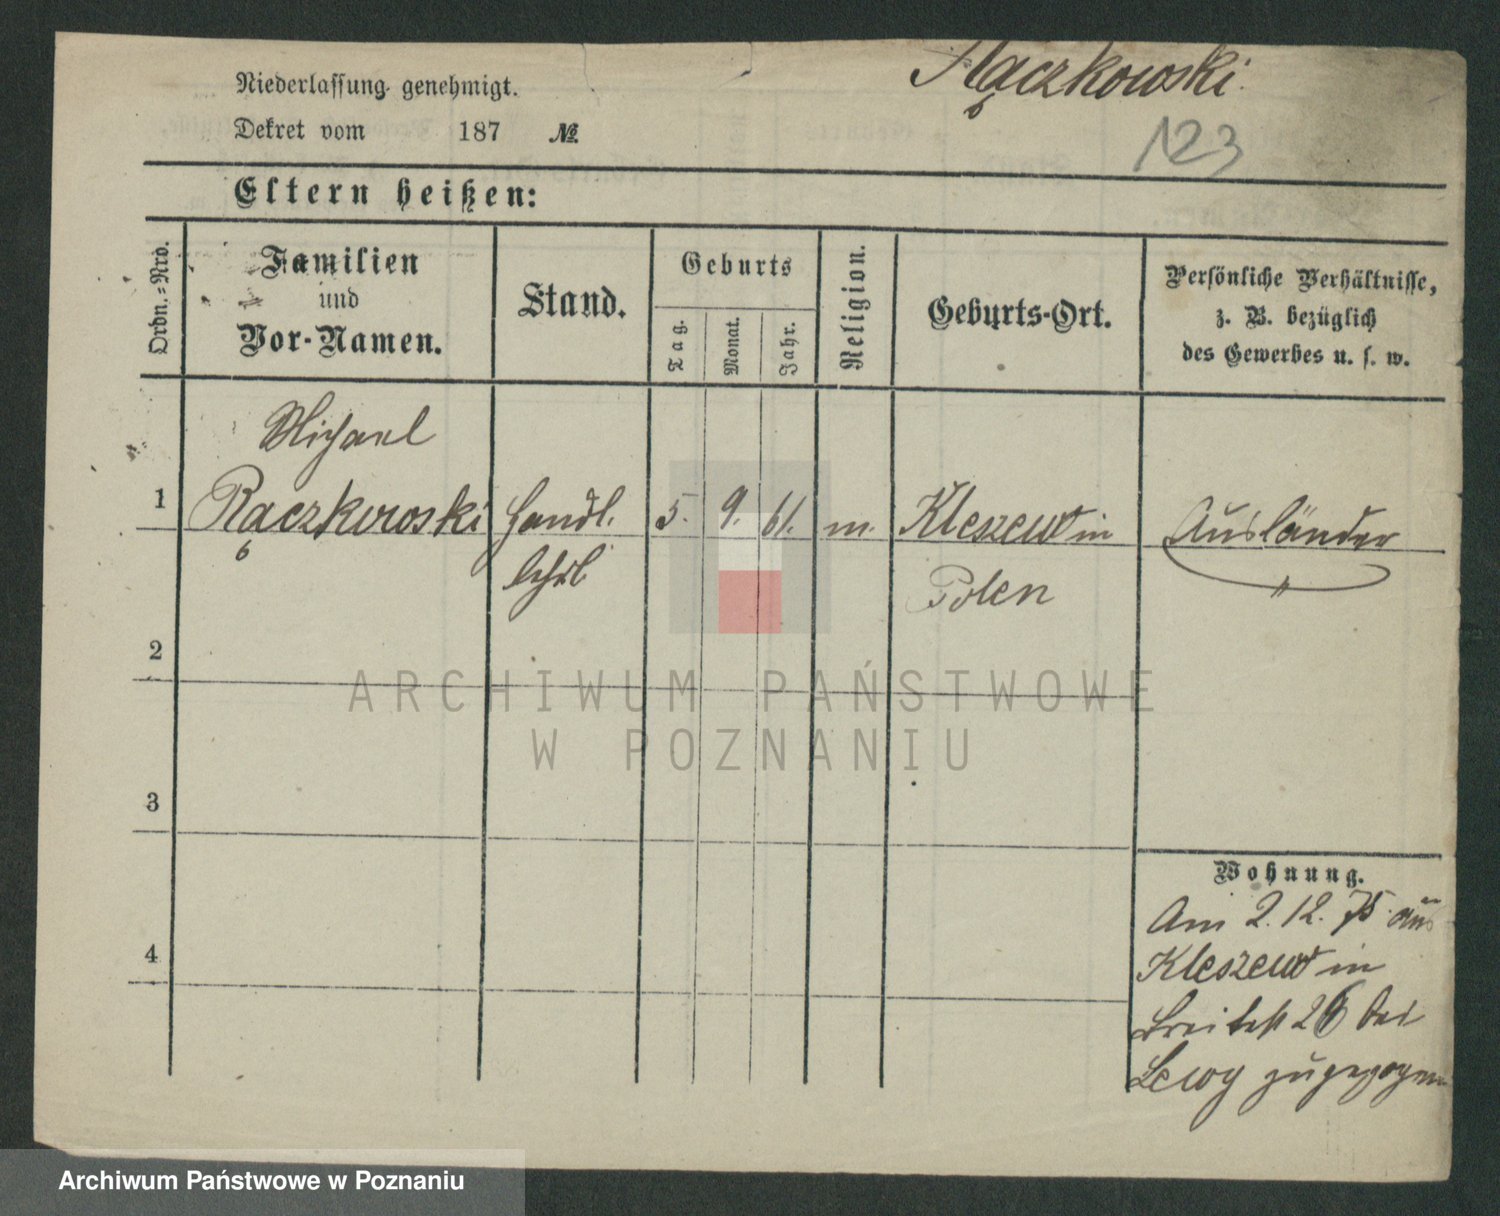 Rączkowski.
123
Niederlassung genehmigt.
Dekret vom 187 №
Eltern heißen:
Ordn.=Nro.
Familien
und
Vor-Namen.
Stand.
Geburts
Tag.
Monat.
Jahr.
Religion.
Geburts-Ort.
Persönliche Verhältnisse,
z. B. bezüglich
des Gewerbes u. s. w.
Michael
1 Rączkowski Handl. 5. 9. 61. m. Kleszewo in Ausländer
lehrl Polen
2
3
4
Wohnung.
Am 2. 12. 75 aus
Kleszewo in
Breitestr 26 bei
Lewy zugezogen
ARCHIWUM PAŃSTWOWE
W POZNANIU
Archiwum Państwowe w Poznaniu